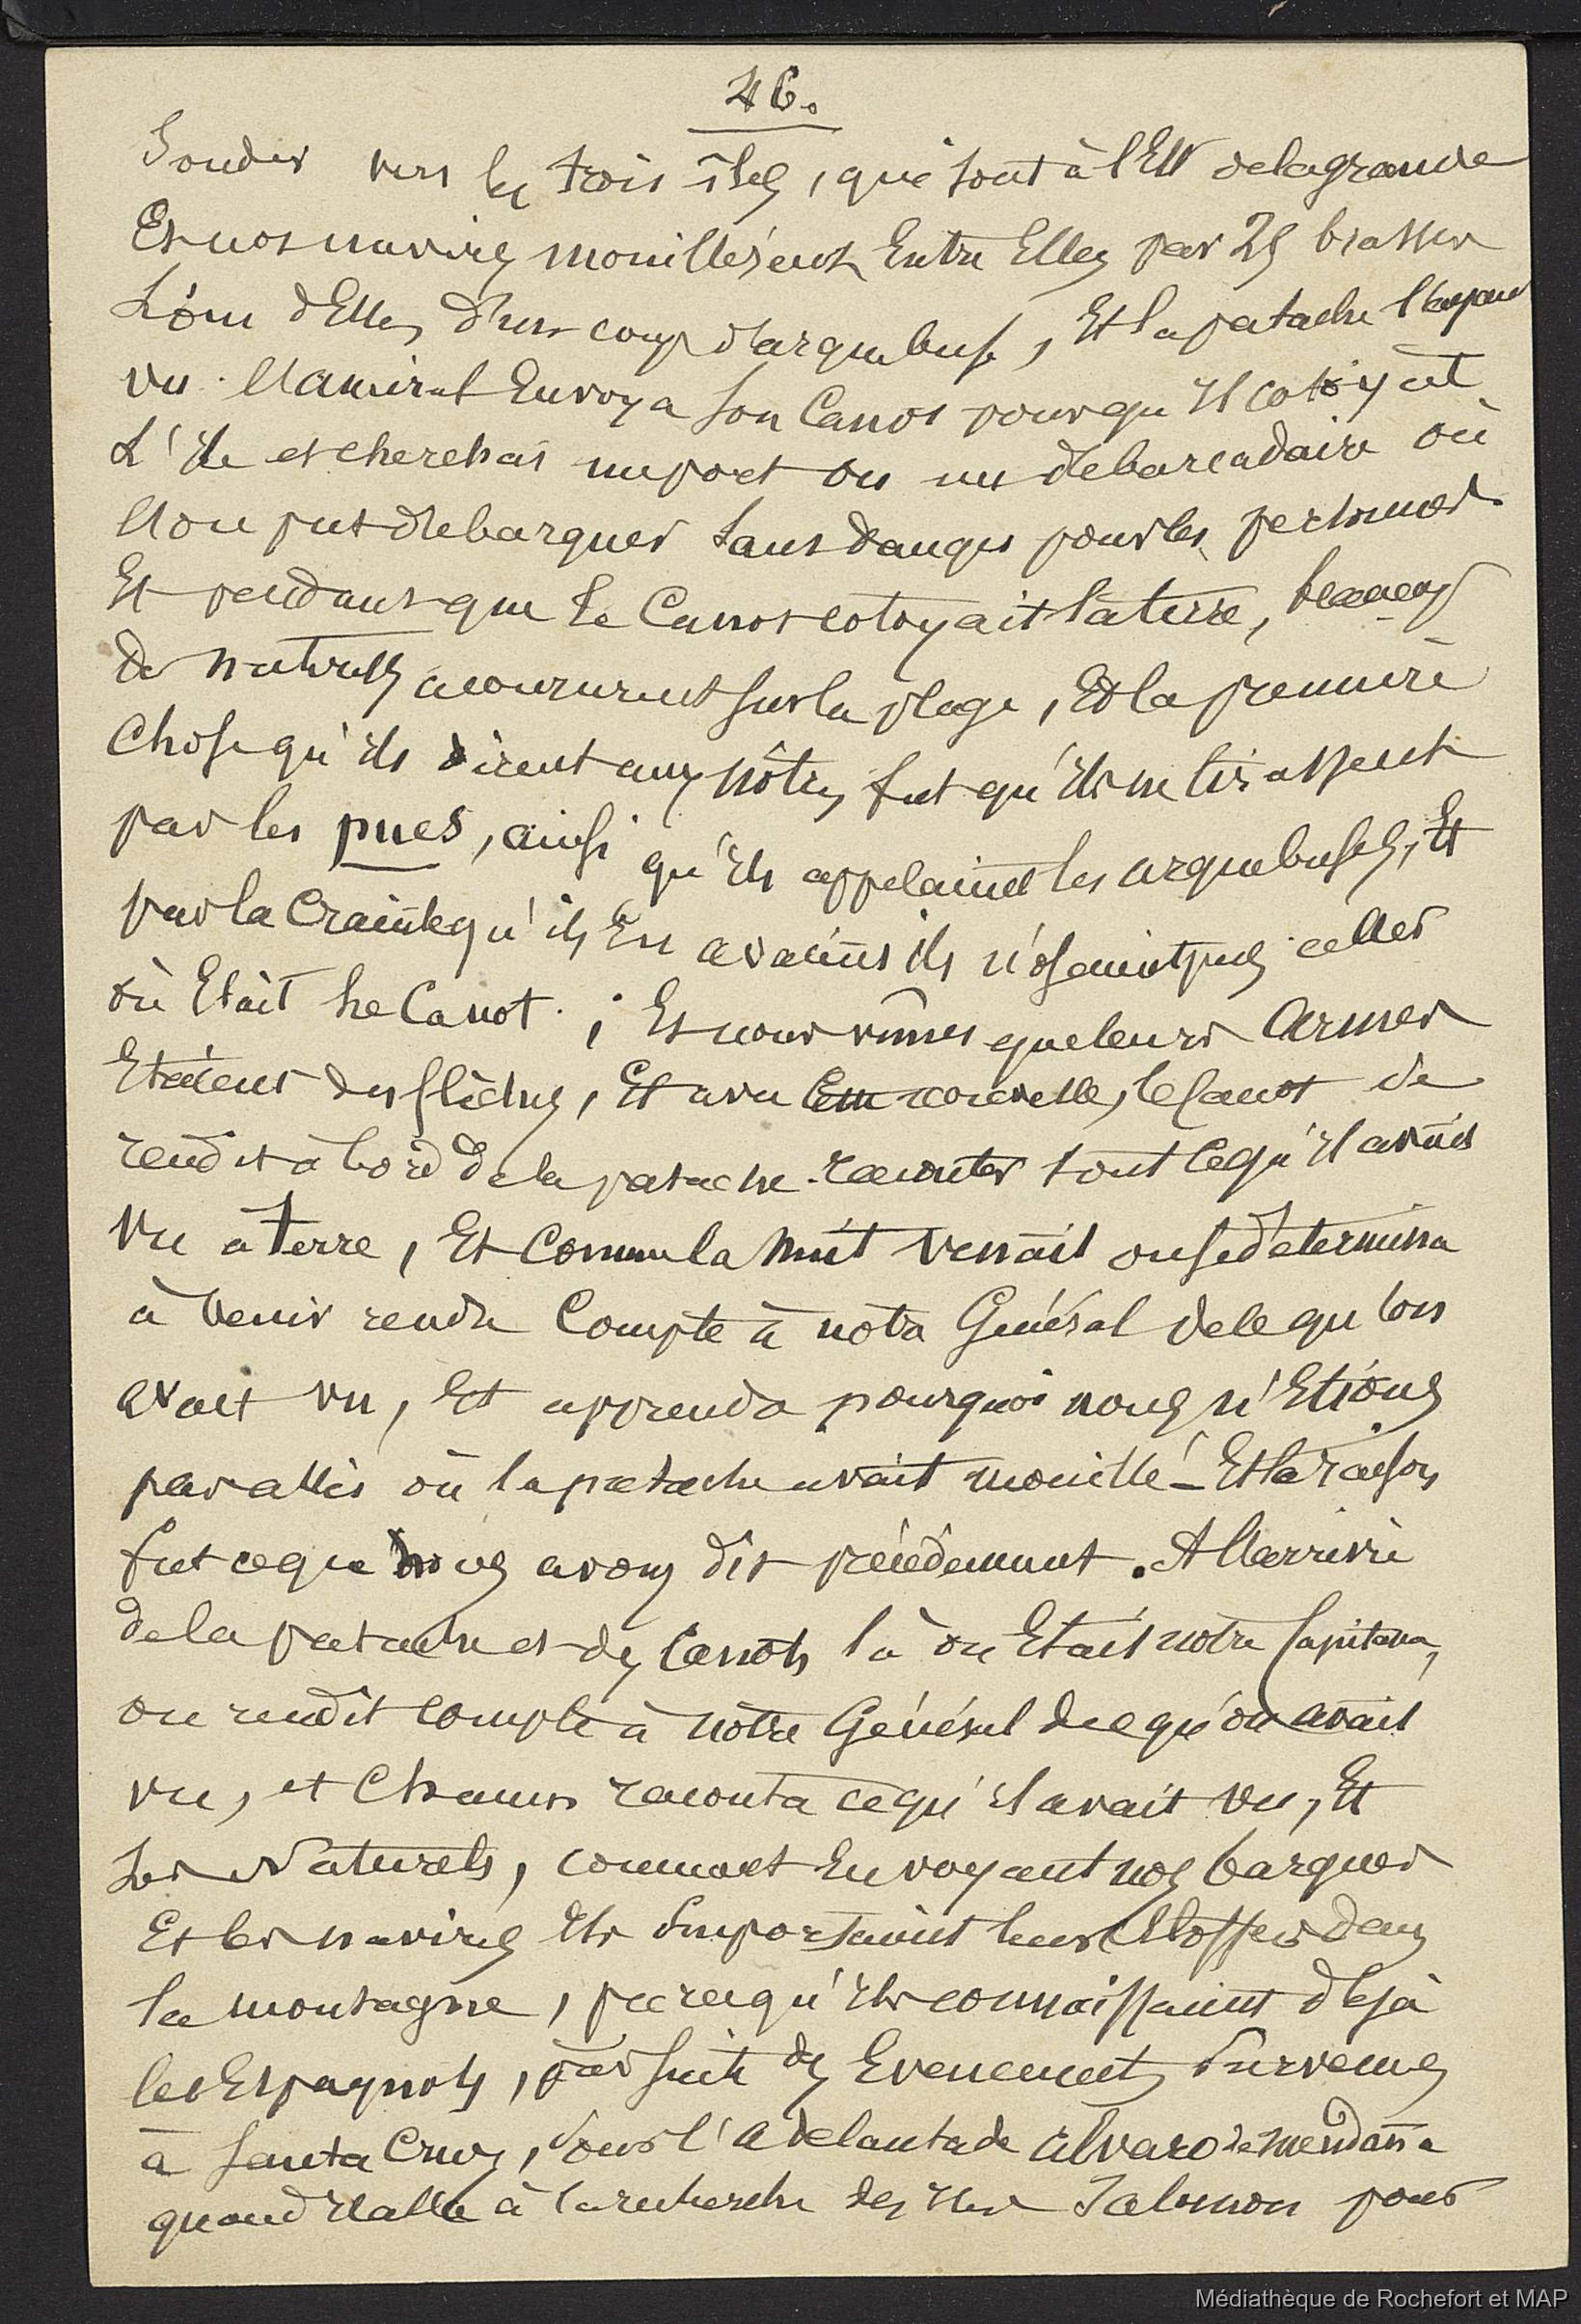 46.
Sonder vers les trois îles, qui sont à l'Est de la grande
Et nos navires mouillèrent Entre Elles par 25 brasses
Loin d'Elles d'un coup d'arquebuse, Et la patache l'ayant
vu. L'amiral Envoya son Canot pour qu'il cotoyat
L'île et cherchat un port ou un debarcadaire où
l'on put debarquer sans danger pour les personnes
Et pendant que le Canot cotoyait la terre, beaucoup
de naturels acoururent sur la plage, Et la première
Chose qu'ils dirent aux nôtres fut qu'ils ne tirassent
pas les pues, ainsi qu'ils appelaient les arquebuses, Et
par la Crainte qu'ils En avaient ils n'osaient pas aller
où Etait le Canot ; Et nous vîmes que leurs Armes
Etaient des flèches, Et avec cette nouvelle, le Canot se
rendit à bord de la patache raconter tout ce qu'il avait
Vu à Terre, Et Comme la Nuit venait on se determina
à Venir rendre Compte à notre Général de ce qu'on
avait vu, Et apprendre pourquoi nous n'Etions
pas allés où la patache avait mouillé – Et la raison
fut ce que nous avons dit précédemment. A l'arrivée
de la patache et des Canots là où Etait notre Capitana,
on rendit compte à nôtre Général de ce qu'on avait
vu, et Chacun raconta ce qu'il avait vu, Et
Les Naturels, comment En voyant nos barques
Et les navires ils Emportaient leurs Etoffes dans
la montagne, parce qu'ils connaissaient déjà
les Espagnols, par suite des Evenements Survenus
à Santa Cruz, sous l'Adelantade Alvaro de Mendaña
quand il alla à la recherche des Iles Salomon pour
Médiathèque de Rochefort et MAP